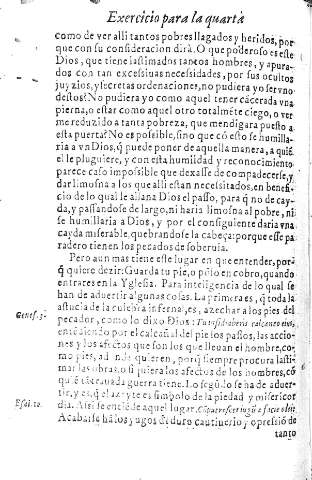 Exercicio para la quarta
como de ver alli tantos pobres llagados y heridos, por
que con su consideracion dirà. O que poderoso es este
Dios, que tiene lastimados tantos hombres, y apura-
dos con tan excessiuas necessidades, por sus ocultos
juyzios, y secretas ordenaciones, no pudiera yo ser vno
destos? No pudiera yo como aquel tener cācerada vna
pierna, o estar como aquel otro totalmēte ciego, o ver
me reduzido a tanta pobreza, que mendigara puesto a
esta puerta? No es possible, sino que cō esto se humilla-
ria a vn Dios, q̄ puede poner de aquella manera, a quiē
el le pluguiere, y con esta humildad y reconocimiento
parece caso impossible que dexasse de compadecerse, y
dar limosna a los que alli estan necessitados, en benefi-
cio de lo qual le allana Dios el passo, para q̄ no de cay-
da, y passandose de largo, ni haria limosna al pobre, ni
se humillaria a Dios, y por el consiguiente daria vna
cayda miserable, quebrandose la cabeça: porque esse pa-
radero tienen los pecados de soberuia.
Pero aun mas tiene este lugar en que entender, porē
q̄ quiere dezir: Guarda tu pie, o pōlo en cobro, quando
entrares en la Yglesia. Para inteligencia de lo qual se
han de aduertir algunas cosas. La primera es, q̄ toda la
Genes. 3.
astucia de la culebra infernal, es, azechar a los pies del
pecador, como lo dixo Dios:
entēdiendo por el calcañal del pie los passos, las accio-
nes y los afectos que son los que lleuan el hombre, co-
mo pies, quieren, porq̄ siempre procura lasti-
mar las obras, o si quiera los afectos de los hombres, cō
quiē guerra tiene. Lo segūdo se ha de aduer-
tir, y es, q̄ el azeyte es simbolo de la piedad y misericor
Esai. 10.
dia. Assi se entiēde aquel lugar.
Acabarse hā los yugos de duro cautiuerio y opressiō de
tanto